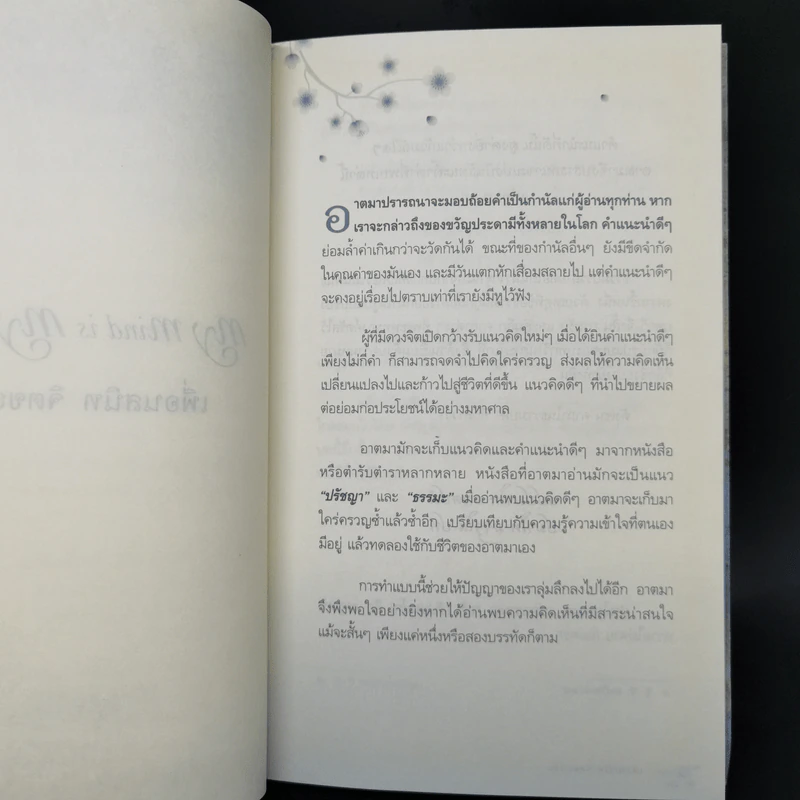 อาตมาปรารถนาจะมอบถ้อยคำเป็นกำนัลแก่ผู้อ่านทุกท่าน หาก
เราจะกล่าวถึงของขวัญประดามีทั้งหลายในโลก คำแนะนำดีๆ
ย่อมล้ำค่าเกินกว่าจะวัดกันได้ ขณะที่ของกำนัลอื่นๆ ยังมีขีดจำกัด
ในคุณค่าของมันเอง และมีวันแตกหักเสื่อมสลายไป แต่คำแนะนำดีๆ
จะคงอยู่เรื่อยไปตราบเท่าที่เรายังมีหูไว้ฟัง
ผู้ที่มีดวงจิตเปิดกว้างรับแนวคิดใหม่ๆ เมื่อได้ยินคำแนะนำดีๆ
เพียงไม่กี่คำ ก็สามารถจดจำไปคิดใคร่ครวญ ส่งผลให้ความคิดเห็น
เปลี่ยนแปลงไปและก้าวไปสู่ชีวิตที่ดีขึ้น แนวคิดดีๆ ที่นำไปขยายผล
ต่อย่อมก่อประโยชน์ได้อย่างมหาศาล
อาตมามักจะเก็บแนวคิดและคำแนะนำดีๆ มาจากหนังสือ
หรือตำรับตำราหลากหลาย หนังสือที่อาตมาอ่านมักจะเป็นแนว
“ปรัชญา” และ “ธรรมะ” เมื่ออ่านพบแนวคิดดีๆ อาตมาจะเก็บมา
ใคร่ครวญซ้ำแล้วซ้ำอีก เปรียบเทียบกับความรู้ความเข้าใจที่ตนเอง
มีอยู่ แล้วทดลองใช้กับชีวิตของอาตมาเอง
การทำแบบนี้ช่วยให้ปัญญาของเราลุ่มลึกลงไปได้อีก อาตมา
จึงพึงพอใจอย่างยิ่งหากได้อ่านพบความคิดเห็นที่มีสาระน่าสนใจ
แม้จะสั้นๆ เพียงแค่หนึ่งหรือสองบรรทัดก็ตาม